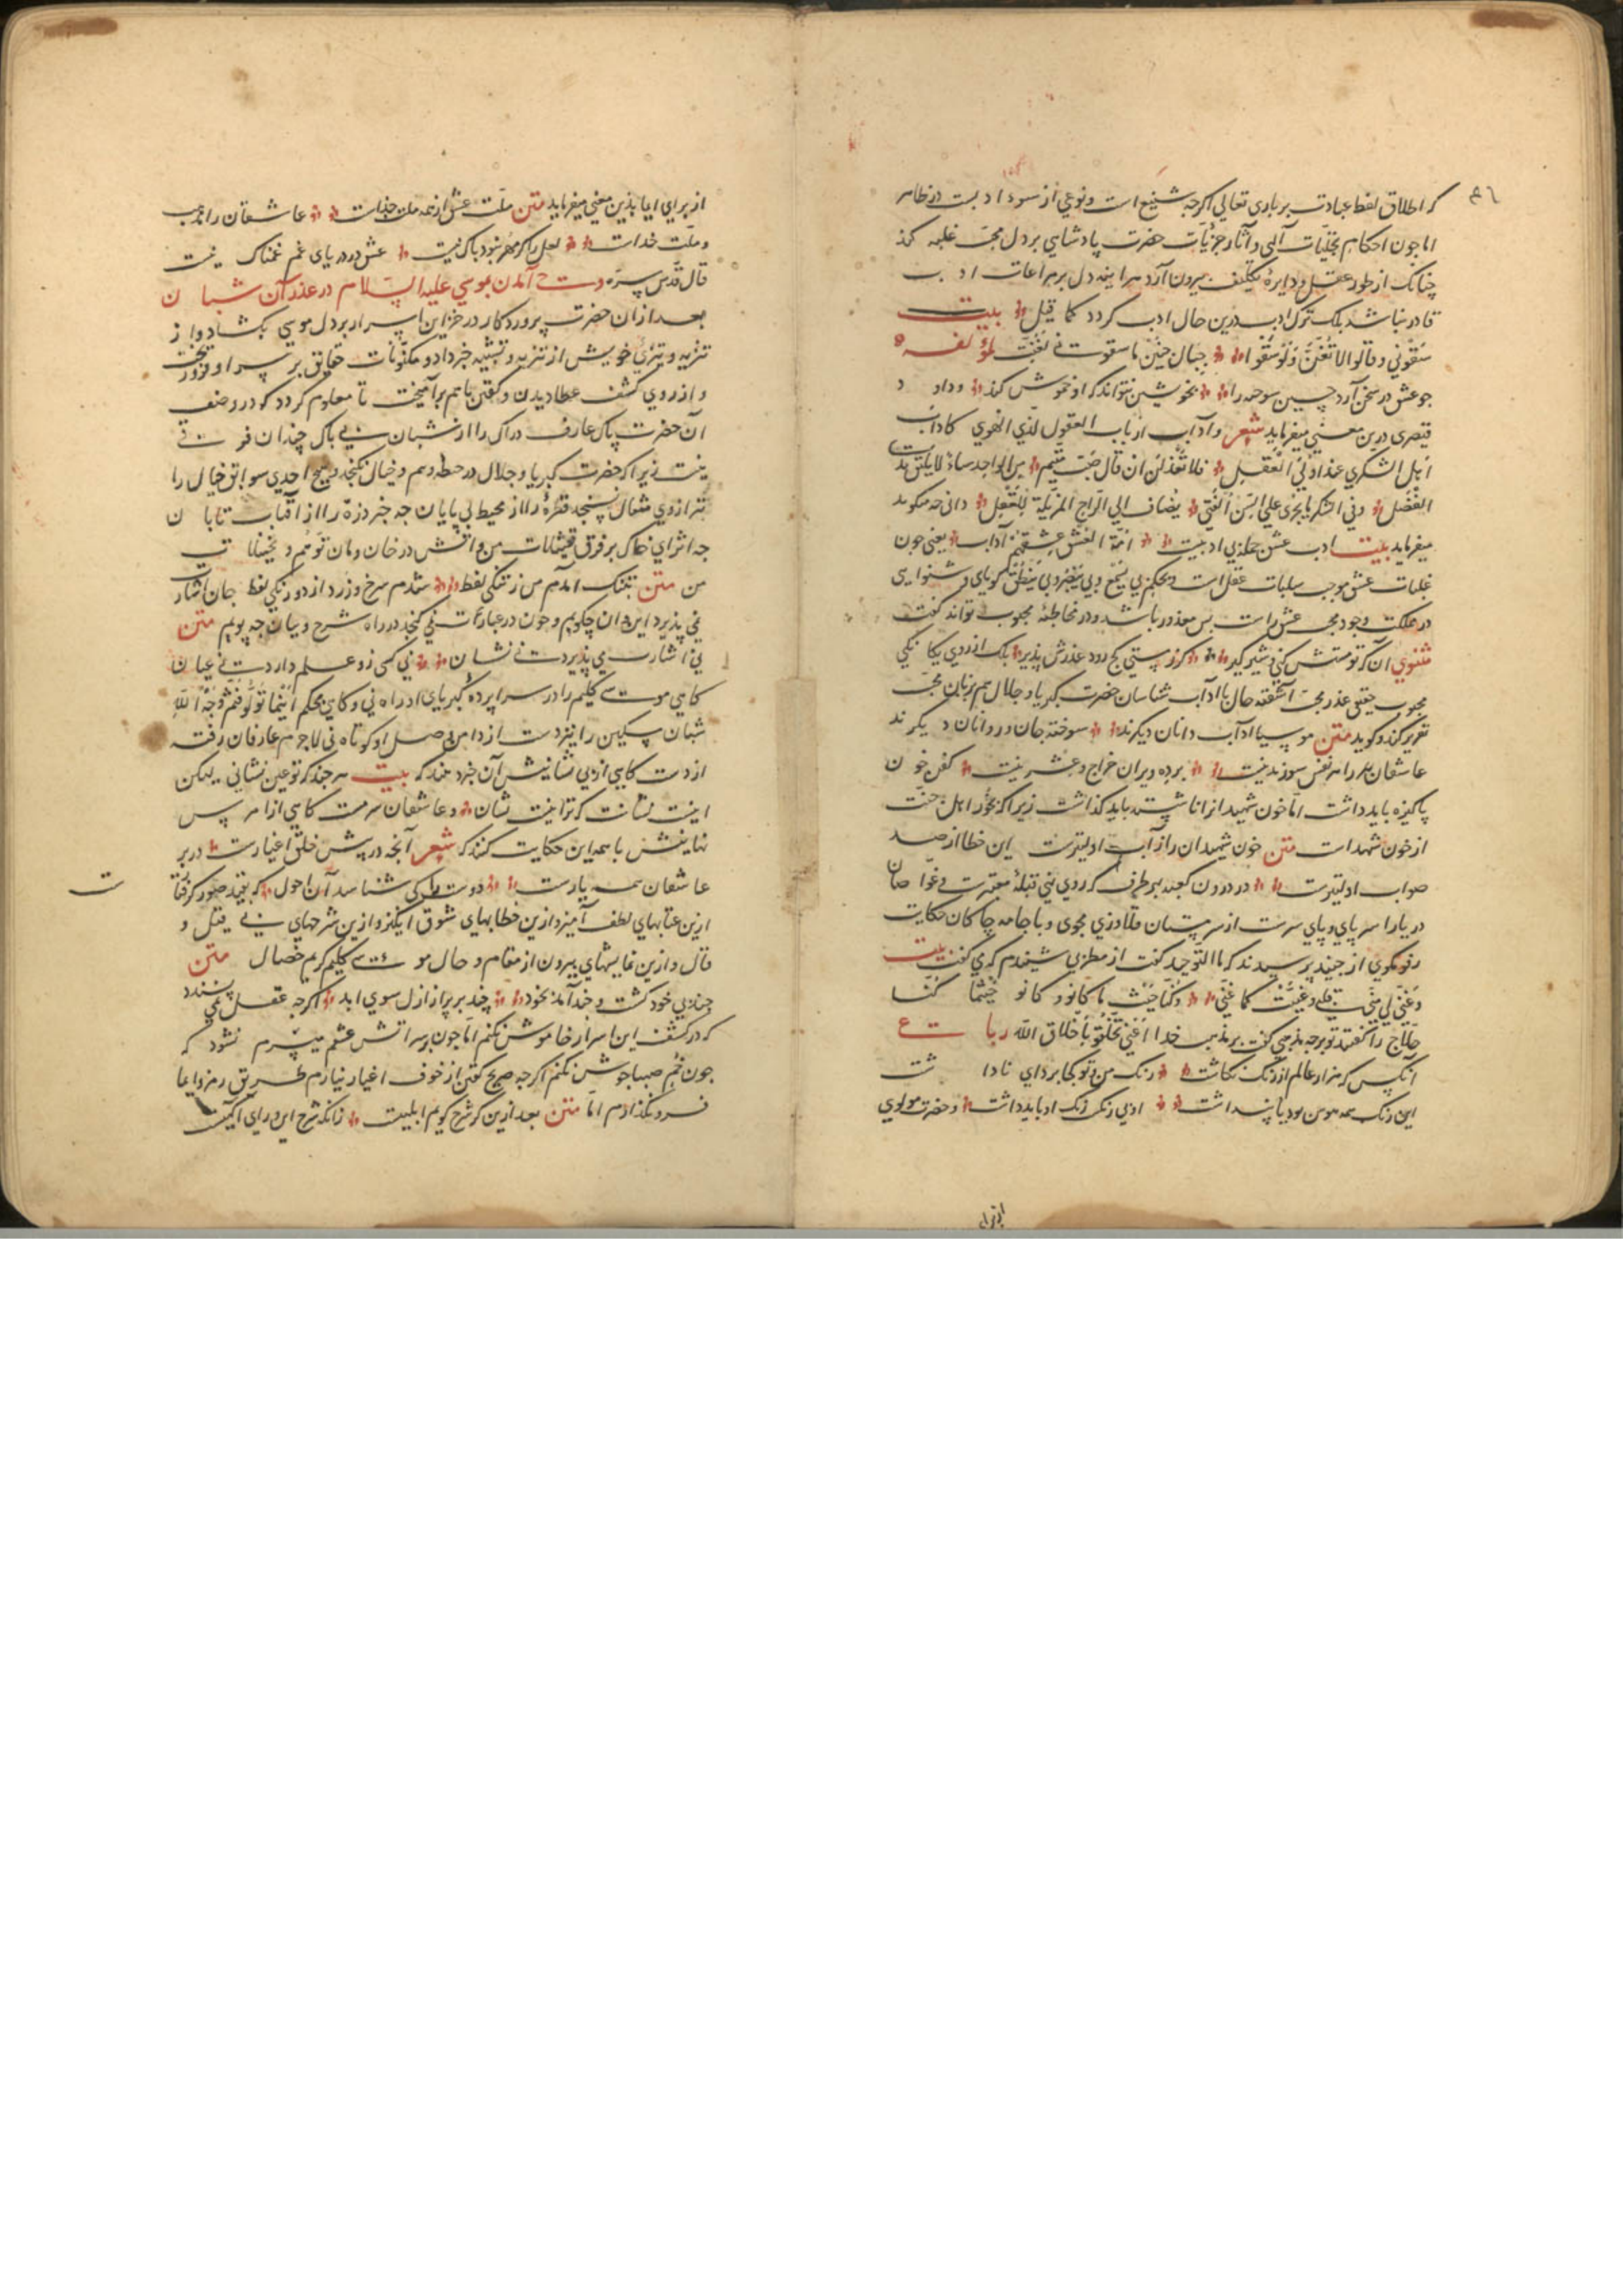 که اطلاق لفظ عبادت بر باری تعالی اکرچه شنیع است و نوعی از سوء ادبست در ظاهر
اما جون احکام تجلیات الهی و آثار جزئیات حضرت پادشاهی بر دل محب غلبه کند
چنانک از طور عقل و دایرهٔ تکلیف بیرون آرد هر اینه دل بر مراعات ادب
قادر نباشد بلک ترک ادب درین حال ادب کردد کما قیل بیت
سَقَونی و قالوا لا تُغَنِّ وَلَو سَقَوا جبال حنین ما سقونی لغنّت لمؤلفه
جو عشق در سخن آرد چنین سوحه را بخویشتن نتواند که او خموش کند و داود
قیصری درین معنی میفرماید شعر و آداب ارباب العقول لذی الهوی کاداب
اهل السکر عند اولی العقل فلا تعذلن ان قال صبّ متیم من الواجد ساءٔ لا یلیق بذی
الفضل و فی السکر ما یجری علی السن الفتی یضاف الی الراح المزیلة للعقل دانی جه میکوید
میفرماید بیت ادب عشق جمله بی ادبیست امّة العشق عشقهم آداب یعنی جون
غلبات عشق موجب سلبات عقل است و بحکم بی یسمع و بی یبصر و بی ینطق کویای و شنوایی
در مملکت وجود محب عشق راست بس معذور باشد و در مخاطبهٔ محبوب تواند کفت
مثنوی آن که تو مستش کنی و شیر کیر کر ز مستی کج رود عذرش پذیر بلک از روی یکانکی
محبوب حقیقی عذر محب آشفته حال با اداب شناسان حضرت کبریا و جلال هم بزبان محب
تقریر کند و کوید متن موسیا آداب دانان دیکرند سوخته جان و روانان دیکرند
عاشقان هر را هر نفس سوزیدنیست بر ده ویران خراج و عشر نیست کفن خون
پاکیزه باید داشت اما خون شهید از انا شسته باید کذاشت زیرا که بخور اهل جنت
از خون شهداست متن خون شهیدان را ز آب اولیترست این خطا از صد
صواب اولیترست در درون کعبه بهر طرف که روی نهی قبلهٔ معتبرست و غواصان
دریا را سر پای و پای سرست از سرمستان قلاوزی مجوی و با جامه چاکان حکایت
رفو مکوی از جنید پرسیدند که ما التوحید کفت از مطربی شنیدم که می کفت بیت
و غنّی لی منّی قلبی و غنّیت کما غنّی و کنّا حیث ما کانوا و کانوا حیثما کنّا
حلاج را کفتند تو بر چه مذهبی کفت بر مذهب خدا اعنی تخلّقوا بأخلاق الله رباعی
آنکس که هزار عالم از رنک نکاشت رنک من و تو کجا برد ای ناداشت
این رنک همه هوس بود یا پنداشت او بی رنکست رنک او باید داشت و حضرت مولوی
از برای ایما بذین معنی میفرماید متن ملّت عشق از همه ملت جذاست عاشقان را مذهب
و ملّت خداست لعل را کر مهر نبود باک نیست عشق در دریای غم غمناک نیست
قال قدّس سرّه وحی آمدن بموسی علیه السّلام در عذر آن شبان
بعد از ان حضرت پروردکار در خزاین اسرار بر دل موسی بکشاد و از
تنزیه و تبرّی خویش از تنزیه و تشبیه خبر داد و مکنونات حقایق بر سر او فرو ریخت
و از روی کشف عطا دیدن و کفتن باهم برآمیخت تا معلوم کردد که در وصف
آن حضرت پاک عارف دراک را از شبان بی باک چندان فرقی
نیست زیرا که حضرت کبریا و جلال در حیطهٔ وهم و خیال نکنجد و هیج احدی سوابق خیال را
بترازوی مثقال نسنجد قطره را از محیط بی پایان جه خبر و ذره را از آفتاب تابان
جه اثر ای خاک بر فرق من و افسوس در خان و مان توهّم و تخیّلات
من متن بتنک آمدم من ز تنکی لفظ شدم سرخ و زرد از دو رنکی لفظ جان اشارت
نمی پذیرد ایرا ان جکویم و جون در عبارات نمی کنجد در راه شرح و بیان جه پویم متن
نی اشارت می پذیرد نی نشان نی کسی زو علم دارد نی عیان
کاهی موسی کلیم را در سرا پردهٔ کبریای او راه نی و کاهی بحکم اینما تولّوا فثمّ وجه الله
شبان مسکین را نیز دست از دامن وصل او کوتاه نی لاجرم عارفان رفته
از دست کاهی از بی نشانیش آن خبر دهند که بیت هر جند که تو عین نشانی لیکن
اینست نشانت که ترا نیست نشان و عاشقان سرمست کاهی از امر پس
نهایتش با همه این حکایت کنند که شعر آنجه در پیش خلق اغیارست در بر
عاشقان همه یارست دوست را کی شناسد آن احول که بقید صور کرفتا
ازین عتابهای لطف آمیز و ازین خطابهای شوق انکیز و ازین شرحهای بی قیل و
قال و ازین نمایشهای بیرون از مقام و حال موسی کلیم کریم خصال متن
چند بی خود کشت و چند آمد بخود چند برپرید از ازل سوی ابد اکرچه عقل نمی پسندد
که در کشف این اسرار خاموش نکنم اما جون بر سر آتش عشقم میسرم نشود که
جون خم صهبا جوش نکنم اکرجه صریح کفتن از خوف اغیار نیارم طریق رمز و ایما
فرو نکذارم اما متن بعد ازین کر شرح کویم ابلهیست زانکه شرح این ورای آکهیست